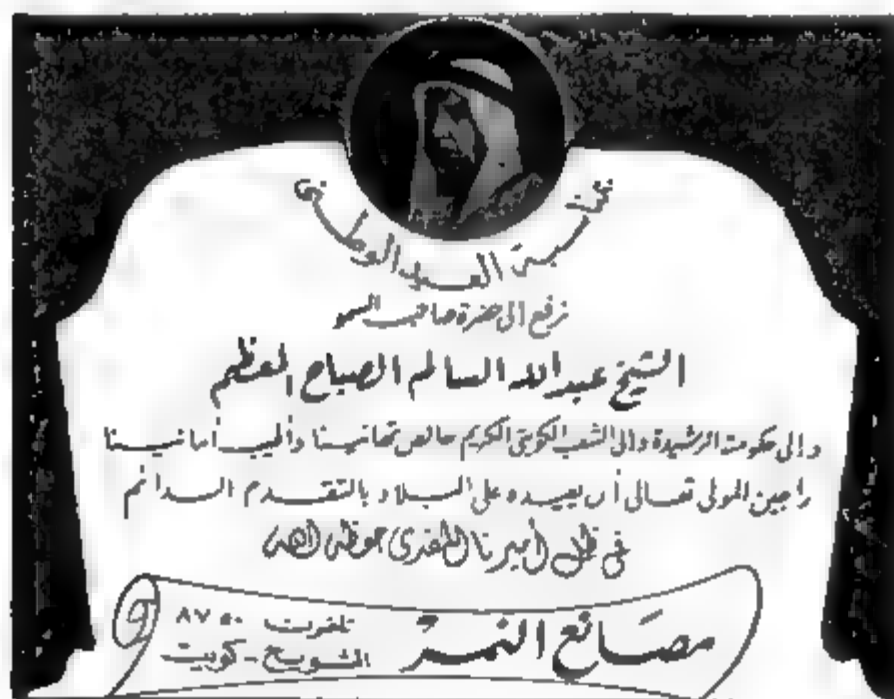 بمناسبة العيد الوطني
نرفع الى حضرة صاحب السمو
الشيخ عبدالله السالم الصباح المعظم
والى حكومته الرشيدة والى الشعب الكويتي الكريم خالص تهانينا وأطيب أمانينا
راجين المولى تعالى أن يعيده على البلاد بالتقدم الدائم
في ظل أميرنا المفدى حفظه الله
مصانع النمر
تلفون ٨٧٥٠
الشويخ - كويت